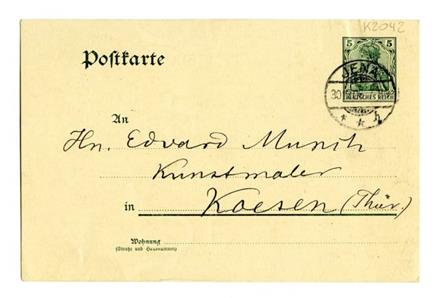 K2042
Postkarte
5 5
JENA
DEUTSCHES REICH
30
* * h
An
Hn. Edvard Munch
Kunstmaler
in Koesen (Thür.)
Wohnung
(Straße und Hausnummer)